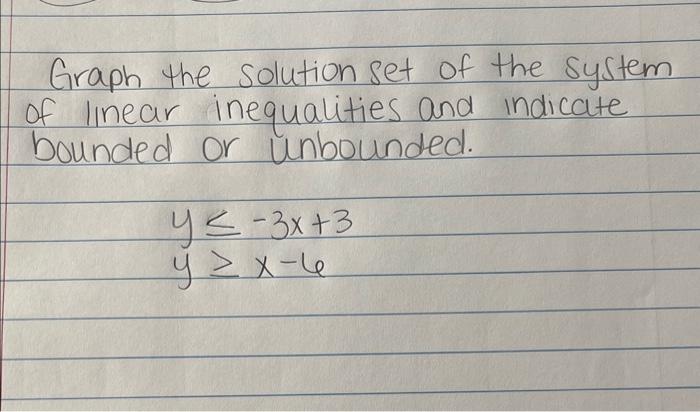 Graph the solution set of the system
of linear inequalities and indicate
bounded or unbounded.
y ≤ -3x+3
y ≥ x-6